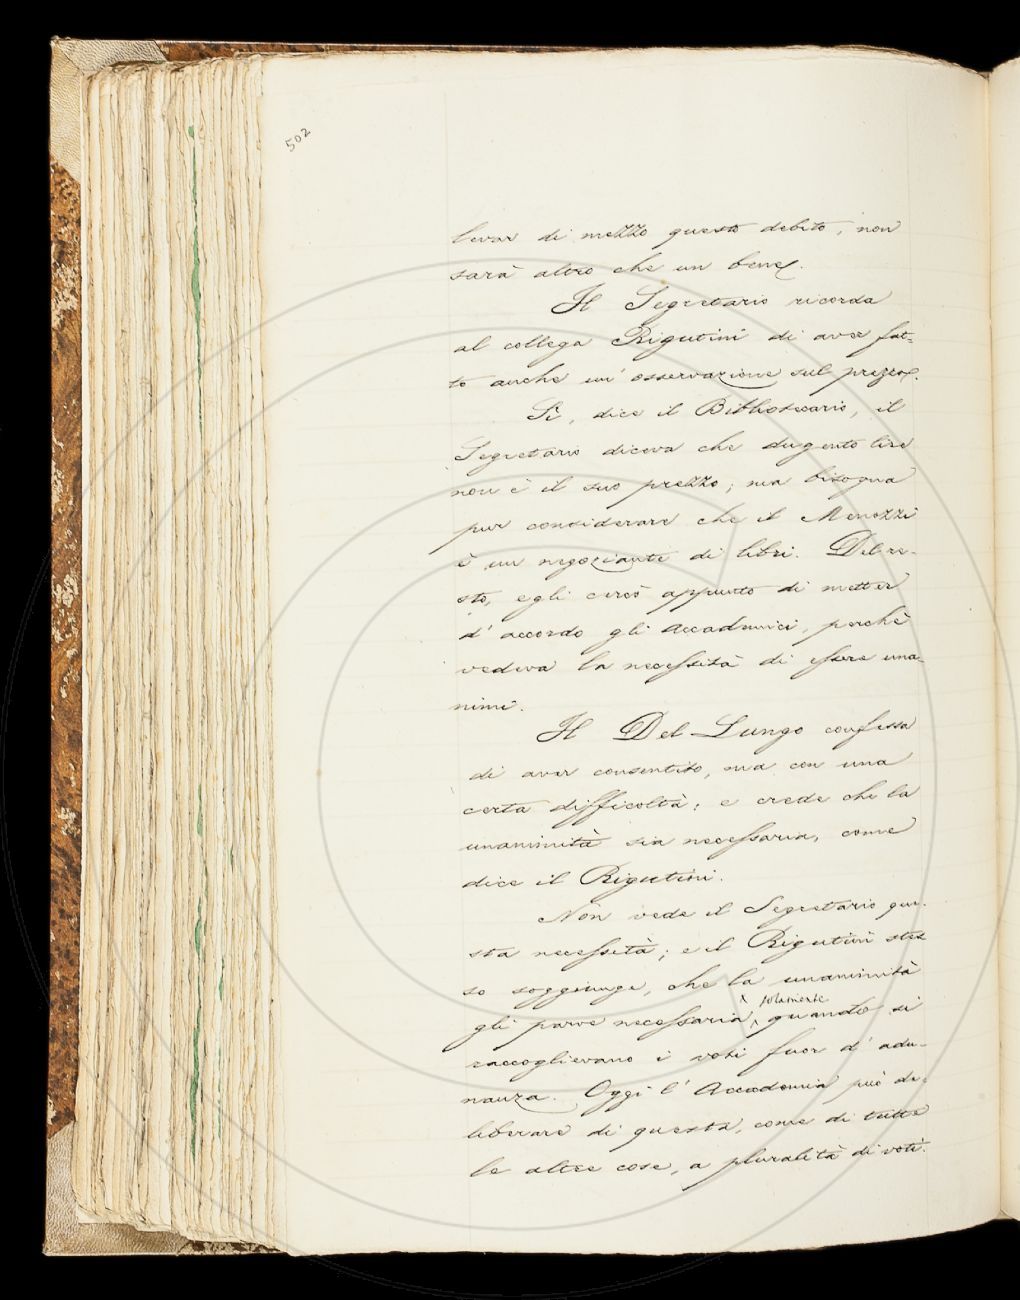 502
levar di mezzo questo debito, non
sarà altro che un bene.
Il Segretario ricorda
al collega Rigutini di aver fat-
to anche un' osservazione sul prezzo.
Sì, dice il Bibliotecario, il
Segretario diceva che dugento lire
non è il suo prezzo; ma bisogna
pur considerare che il Menozzi
è un negoziante di libri. Del re-
sto, egli cercò appunto di metter
d' accordo gli Accademici, perchè
vedeva la necessità di essere una-
nimi.
Il Del Lungo confessa
di aver consentito, ma con una
certa difficoltà; e crede che la
unanimità sia necessaria, come
dice il Rigutini.
Non vede il Segretario que-
sta necessità; e il Rigutini stes-
so soggiunge, che la unanimità
gli parve necessaria, solamente quando si
raccoglievano i voti fuor d' adu-
nanza. Oggi l' Accademia può de-
liberare di questa, come di tutte
le altre cose, a pluralità di voti.